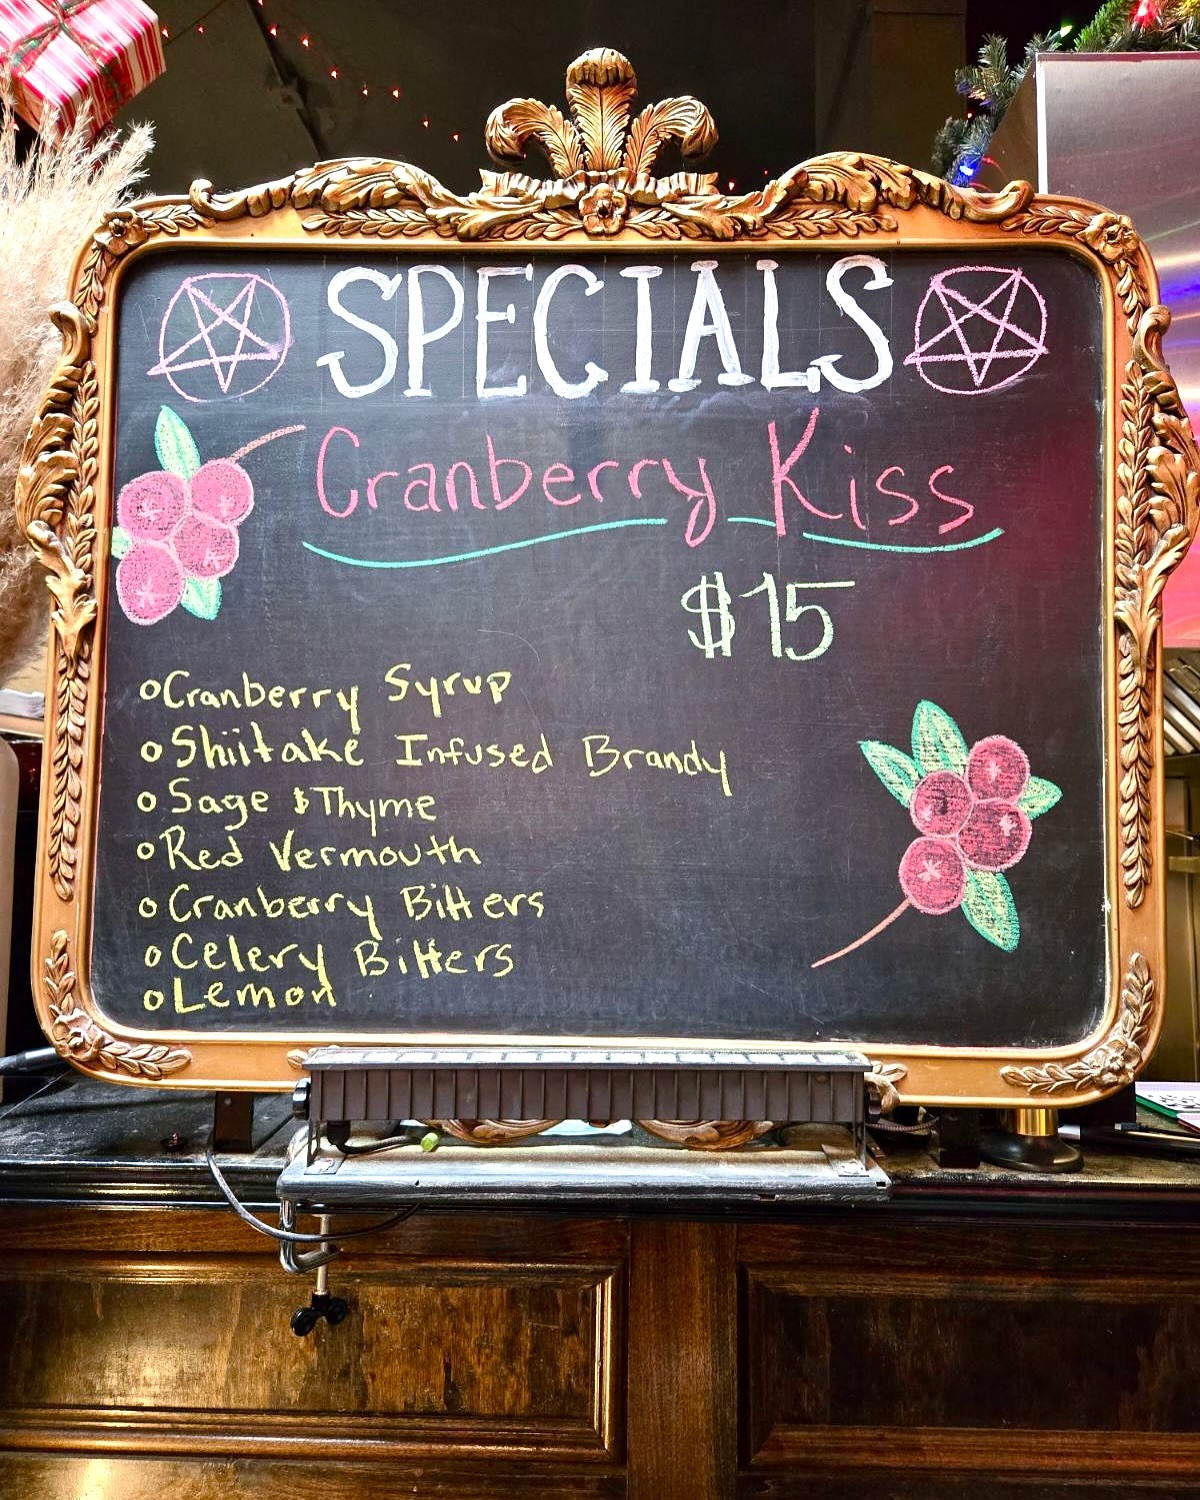 SPECIALS
Cranberry Kiss
$15
Cranberry Syrup
Shiitake Infused Brandy
Sage & Thyme
Red Vermouth
Cranberry Bitters
Celery Bitters
Lemon